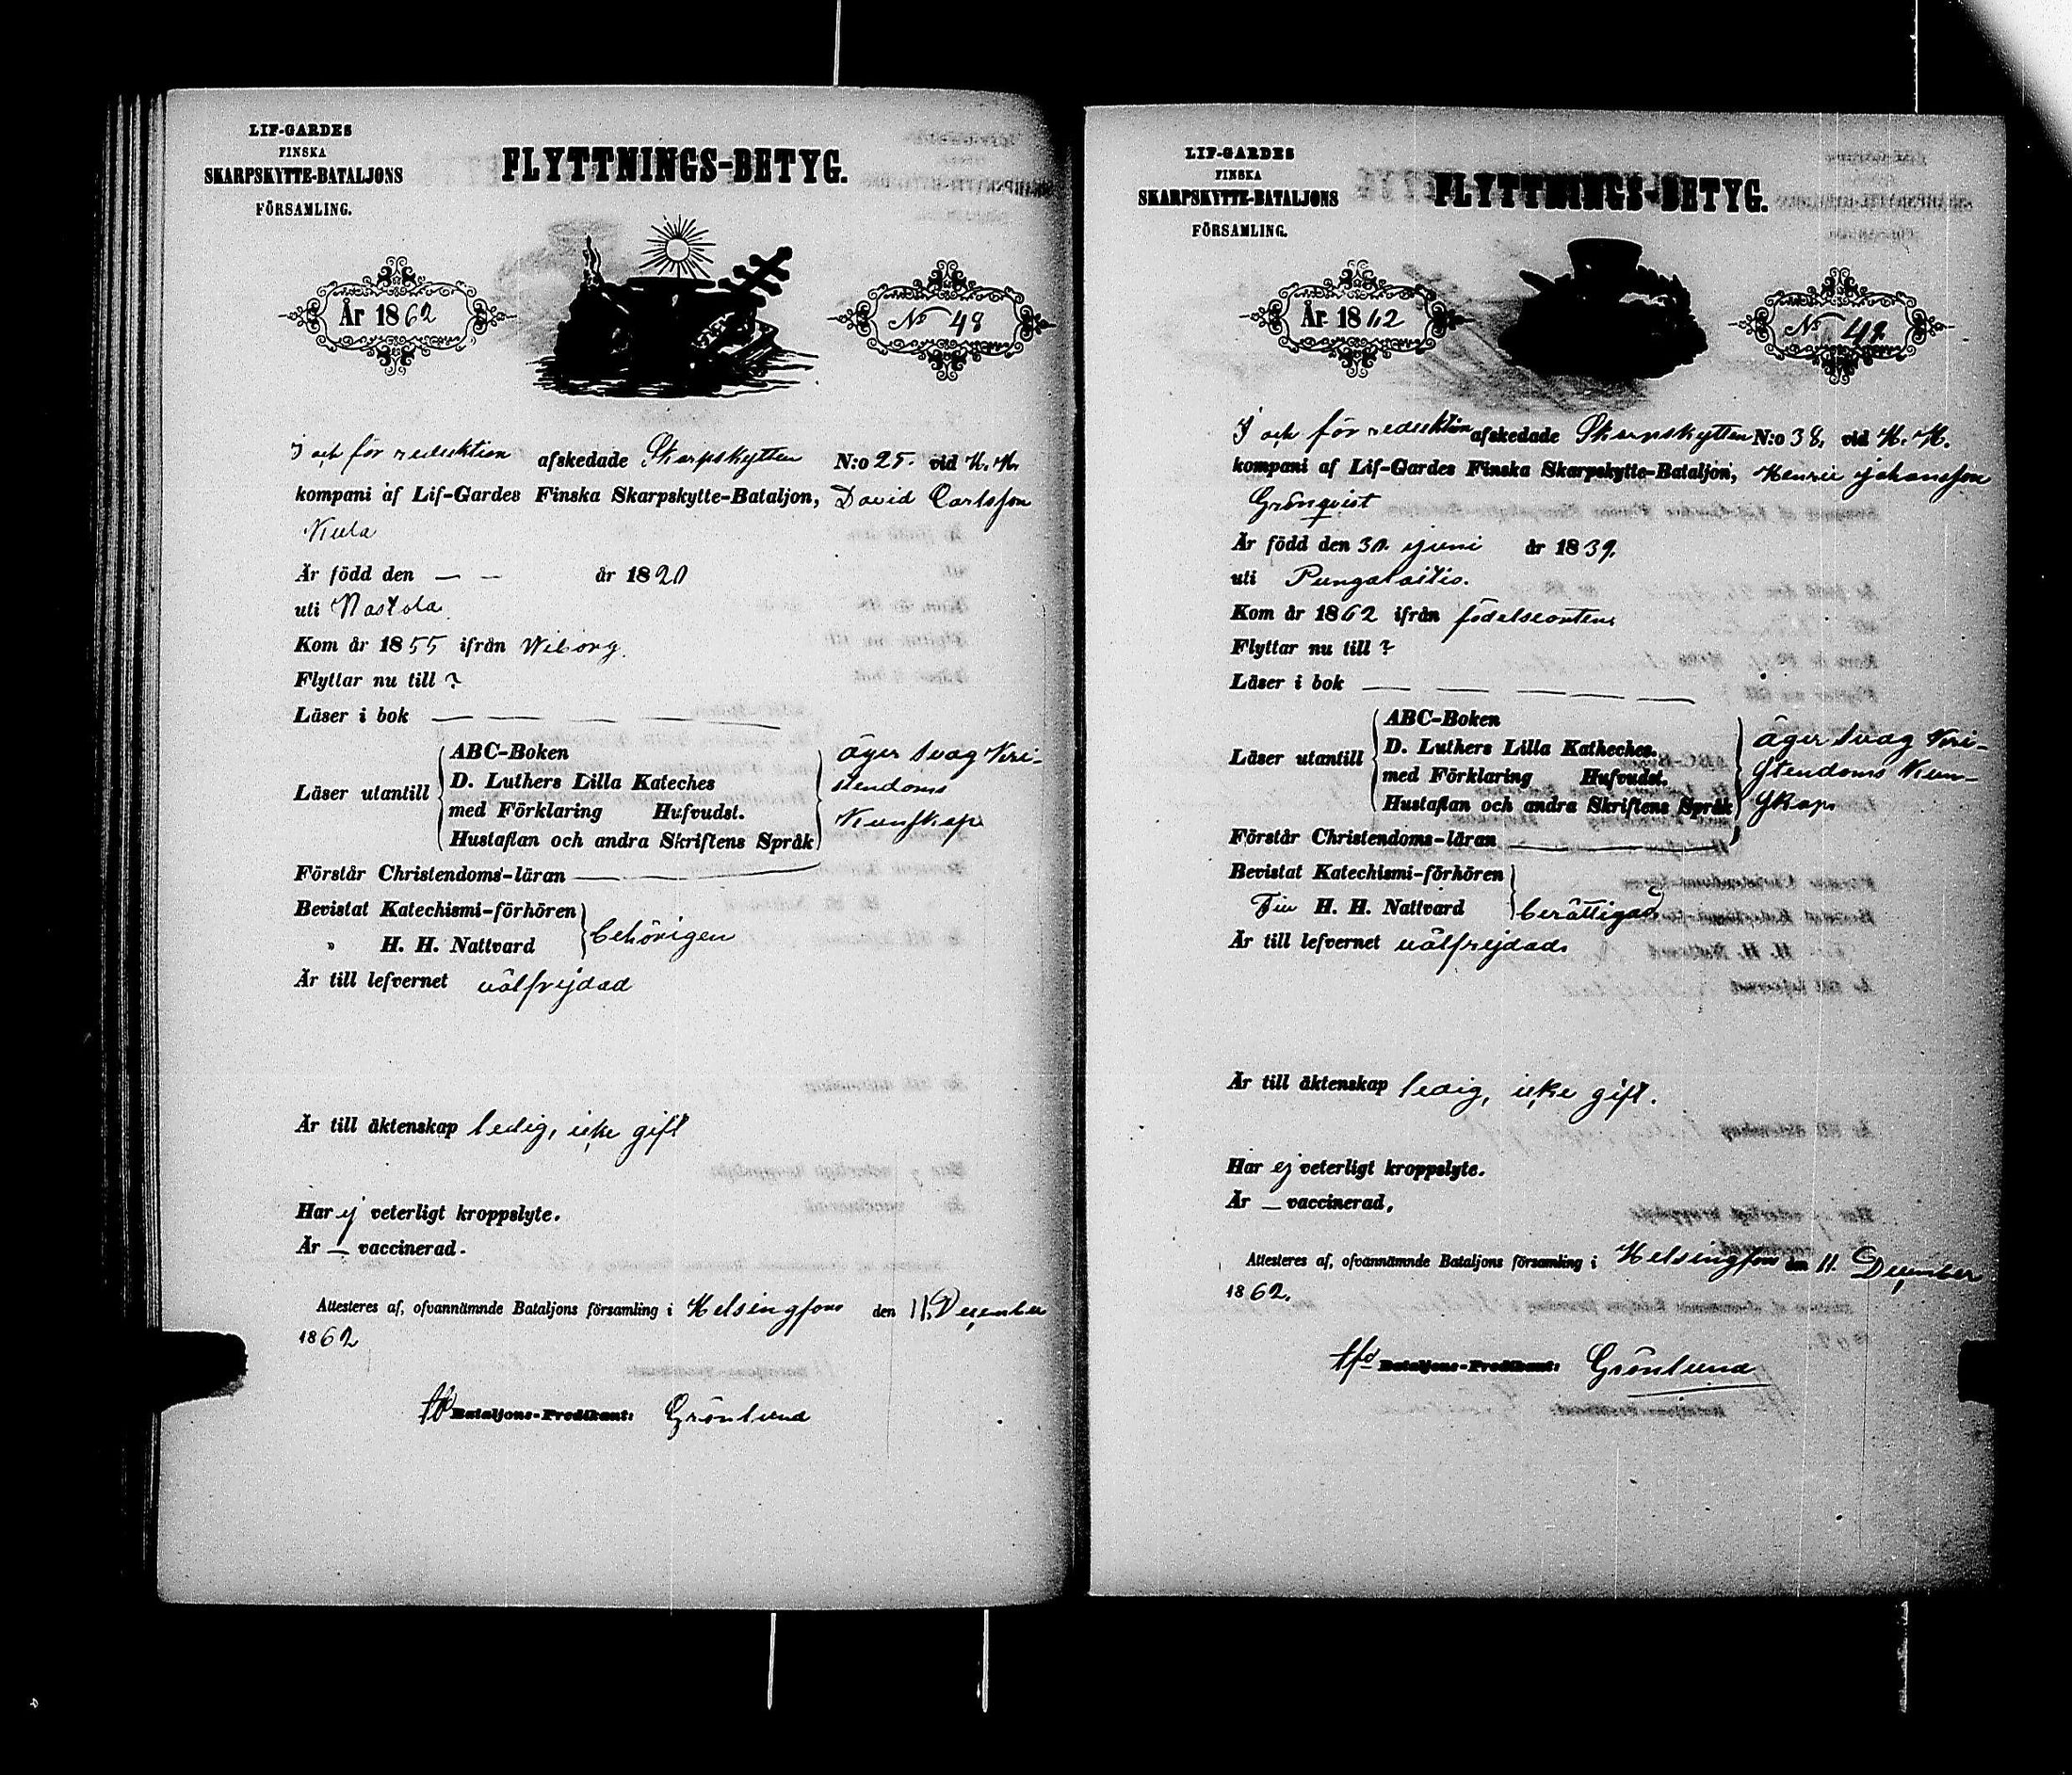 LIF-GARDES
FINSKA
SKARPSKYTTE-BATALJONS
FÖRSAMLING.
FLYTTNINGS-BETYG.
År 1862
No 48
I och för reduktion afskedade Skarpskytten N:o 25. vid K. K.
kompani af Lif-Gardes Finska Skarpskytte-Bataljon, David Carlsson
Kula
Är född den — — år 1820
uti Nastola
Kom år 1855 ifrån Wiborg.
Flyttar nu till ?
Läser i bok — — — —
Läser utantill
ABC-Boken
D. Luthers Lilla Kateches
med Förklaring Hufvudst.
Hustaflan och andra Skriftens Språk
äger svag Kri-
stendoms
Kunskap
Förstår Christendoms-läran —
Bevistat Katechismi-förhören
" H. H. Nattvard
behörigen
Är till lefvernet välfrejdad
Är till äktenskap ledig, icke gift
Har ej veterligt kroppslyte.
Är — vaccinerad.
Attesteres af, ofvannämnde Bataljons församling i Helsingfors den 11. December
1862
tfd Bataljons-Predikant: Grönlund
LIF-GARDES
FINSKA
SKARPSKYTTE-BATALJONS
FÖRSAMLING.
FLYTTNINGS-BETYG.
År 1862
No 49
I och för reduktion afskedade Skarpskytten N:o 38, vid K. K.
kompani af Lif-Gardes Finska Skarpskytte-Bataljon, Henric Johansson
Grönqvist
Är född den 30. Juni år 1839.
uti Pungalaitio.
Kom år 1862 ifrån födelseorten.
Flyttar nu till ?
Läser i bok — — — —
Läser utantill
ABC-Boken
D. Luthers Lilla Katheches.
med Förklaring Hufvudst.
Hustaflan och andra Skriftens Språk
äger svag Kri-
stendoms Kun-
skap
Förstår Christendoms-läran —
Bevistat Katechismi-förhören
Till H. H. Nattvard
berättigad
Är till lefvernet välfrejdad.
Är till äktenskap ledig, icke gift.
Har ej veterligt kroppslyte.
Är — vaccinerad.
Attesteres af, ofvannämnde Bataljons församling i Helsingfors den 11. December
1862.
tfd Bataljons-Predikant: Grönlund